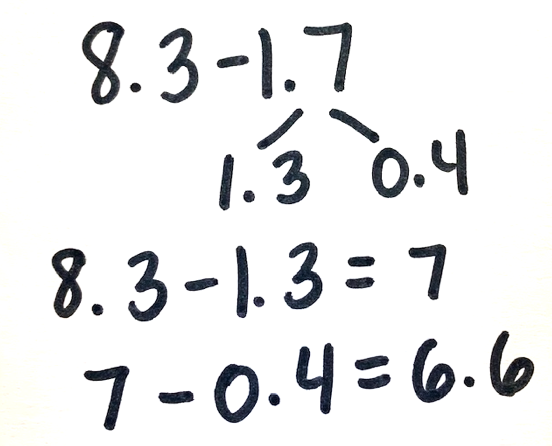 8.3-1.7
1.3 0.4
8.3-1.3=7
7-0.4=6.6